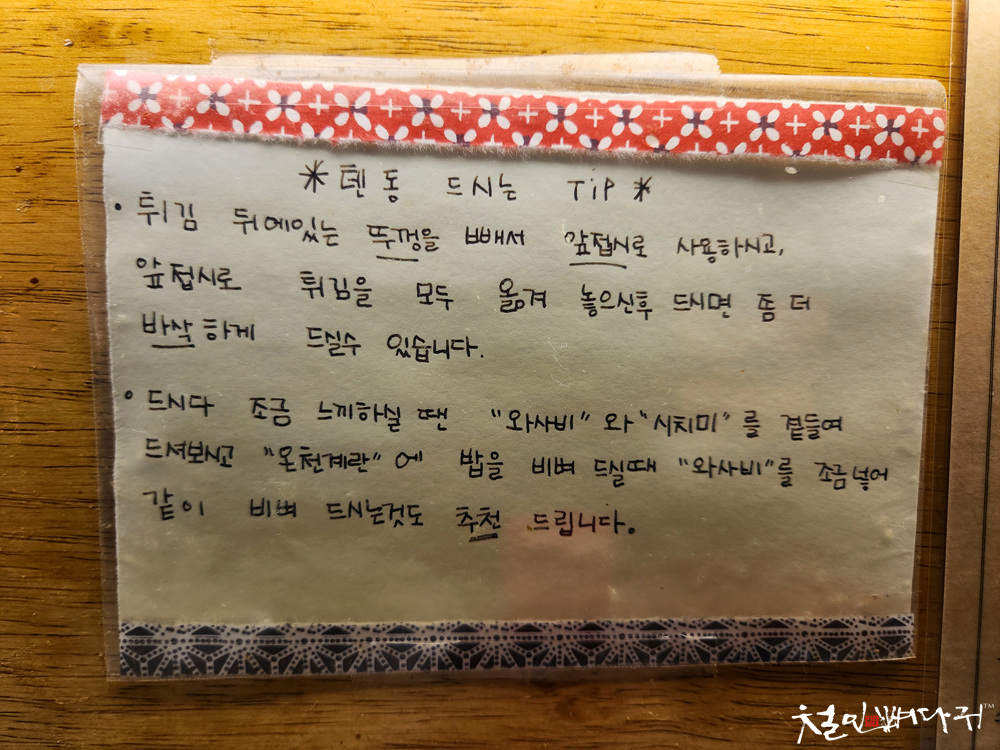 * 텐동 드시는 TiP *
• 튀김 뒤에있는 뚜껑을 빼서 앞접시로 사용하시고,
앞접시로 튀김을 모두 옮겨 놓으신후 드시면 좀 더
바삭하게 드실수 있습니다.
• 드시다 조금 느끼하실 땐 "와사비" 와 "시치미" 를 곁들여
드셔보시고 "온천계란" 에 밥을 비벼 드실때 "와사비"를 조금넣어
같이 비벼 드시는것도 추천 드립니다.
철인뼈다귀™